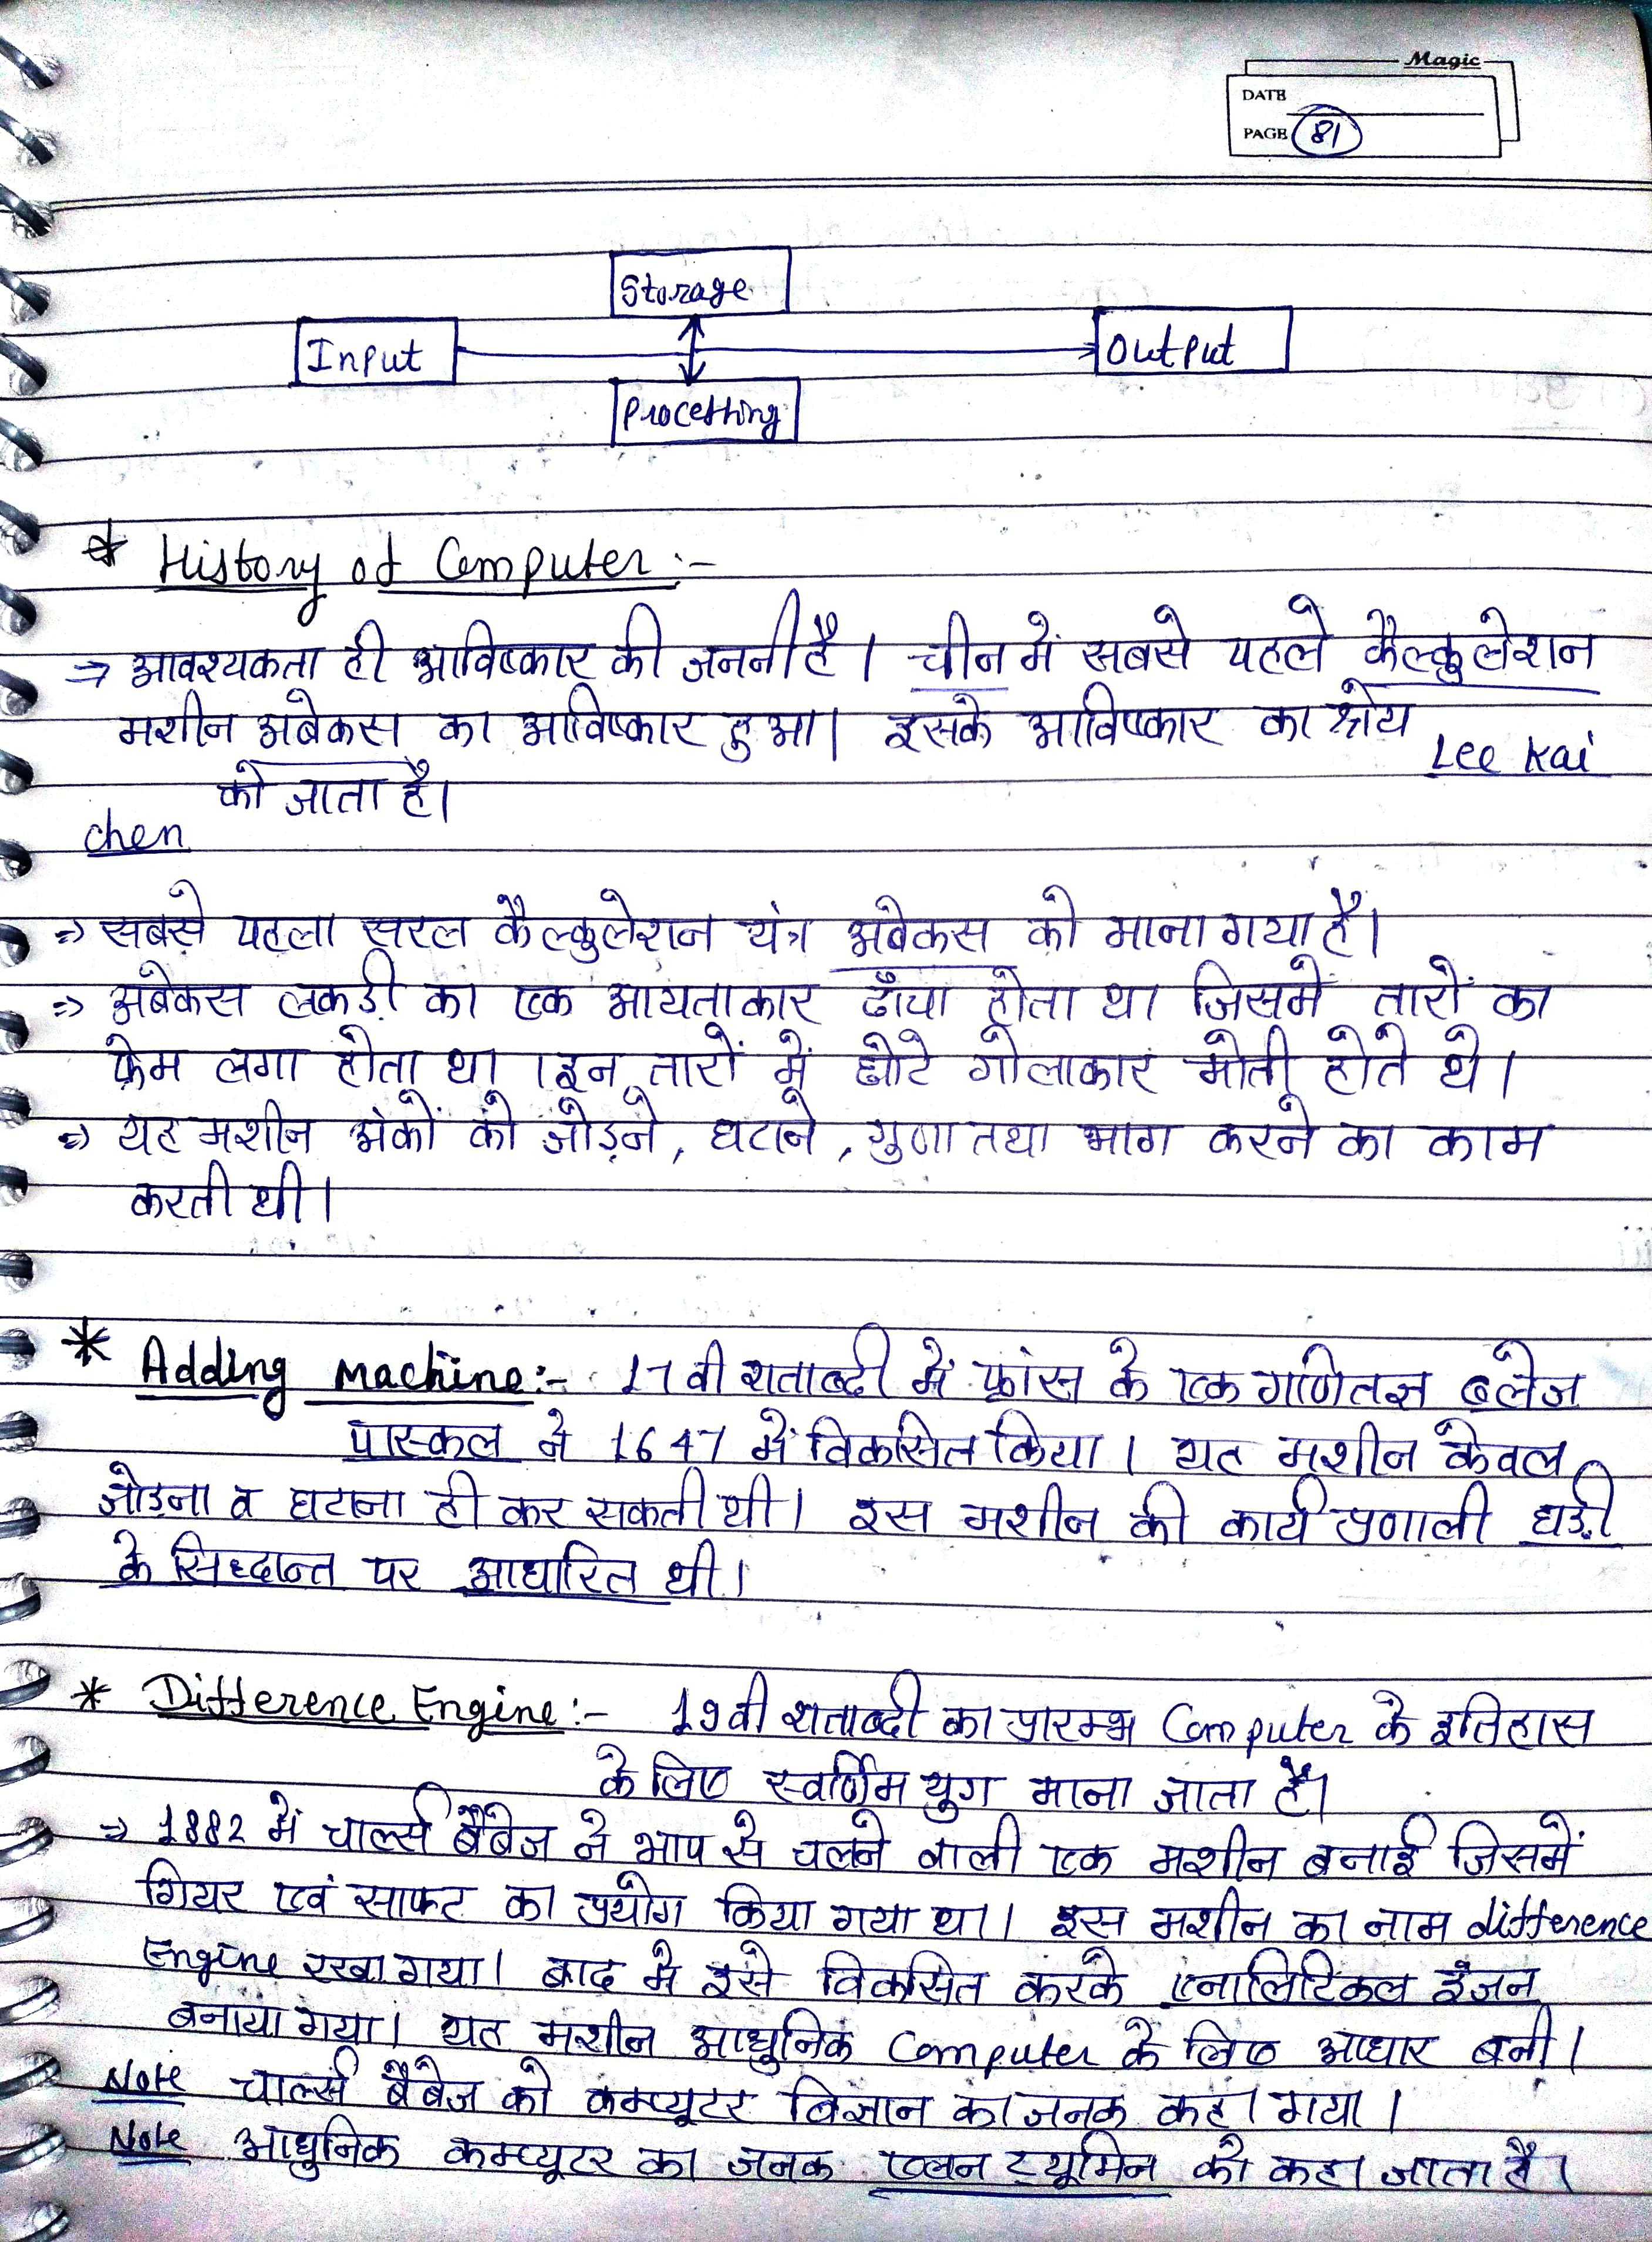 Magic
DATE
PAGE 81
Storage
Input
Output
Processing
* History of Computer :-
⇒ आवश्यकता ही आविष्कार की जननी है। चीन में सबसे पहले कैल्कुलेशन
मशीन अबेकस का आविष्कार हुआ। इसके आविष्कार का श्रेय Lee Kai
chen को जाता है।
⇒ सबसे पहला सरल कैल्कुलेशन यंत्र अबेकस को माना गया है।
⇒ अबेकस लकड़ी का एक आयताकार ढाँचा होता था जिसमें तारों का
फ्रेम लगा होता था। इन तारों में छोटे गोलाकार मोती होते थे।
⇒ यह मशीन अंकों को जोड़ने, घटाने, गुणा तथा भाग करने का काम
करती थी।
* Adding Machine:- 17 वी शताब्दी में फ्रांस के एक गणितज्ञ ब्लेज
पास्कल ने 1647 में विकसित किया। यह मशीन केवल
जोड़ना व घटाना ही कर सकती थी। इस मशीन की कार्य प्रणाली घड़ी
के सिध्दान्त पर आधारित थी।
* Difference Engine:- 19वी शताब्दी का प्रारम्भ Computer के इतिहास
के लिए स्वर्णिम युग माना जाता है।
⇒ 1882 में चार्ल्स बैबेज ने भाप से चलने वाली एक मशीन बनाई जिसमें
गियर एवं साफ्ट का प्रयोग किया गया था। इस मशीन का नाम difference
Engine रखा गया। बाद में इसे विकसित करके एनालिटिकल इंजन
बनाया गया। यह मशीन आधुनिक Computer के लिए आधार बनी।
Note चार्ल्स बैबेज को कम्प्यूटर विज्ञान का जनक कहा गया।
Note आधुनिक कम्प्यूटर का जनक एलन ट्यूमिन को कहा जाता है।